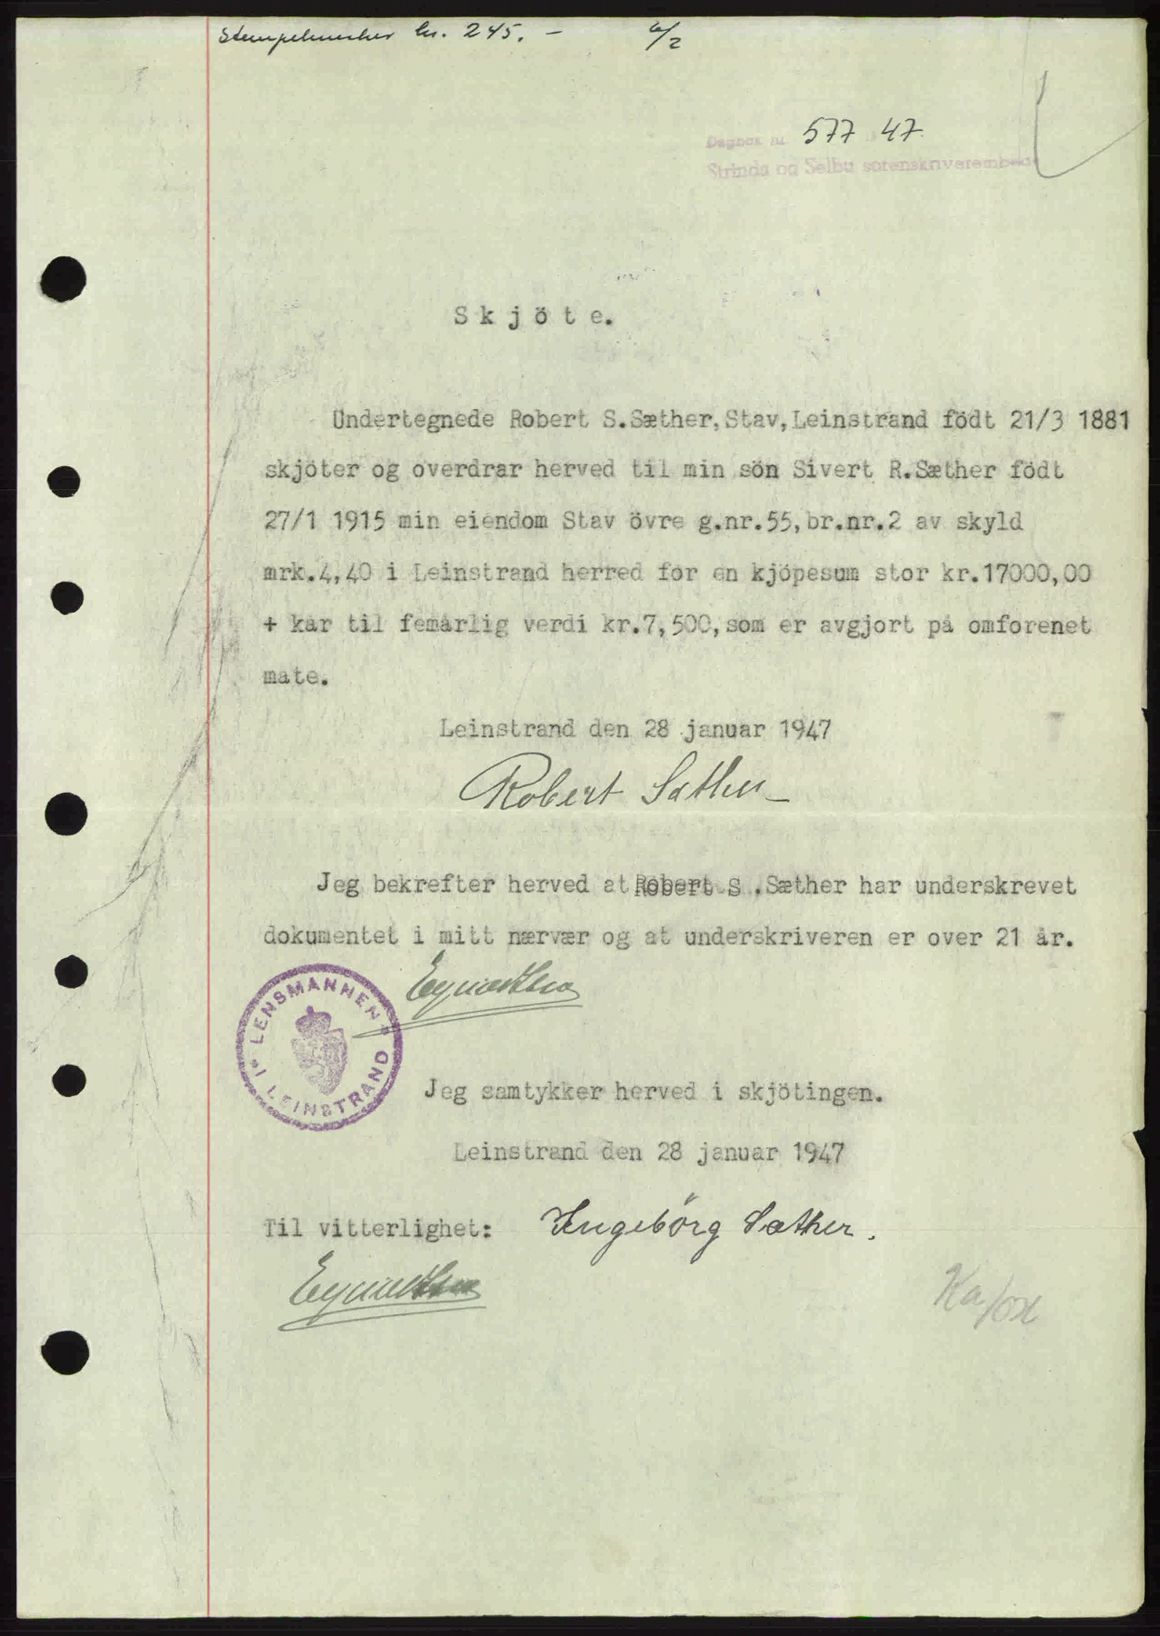 Stempelmerker kr. 245. - 6/2
Dagbok nr. 577 47.
Strinda og Selbu sorenskriverembede
Skjöte.
Undertegnede Robert S.Sæther, Stav, Leinstrand födt 21/3 1881
skjöter og overdrar herved til min sön Sivert R.Sæther födt
27/1 1915 min eiendom Stav övre g.nr.55, br.nr.2 av skyld
mrk.4,40 i Leinstrand herred for en kjöpesum stor kr.17000,00
+ kår til femårlig verdi kr.7,500, som er avgjort på omforenet
måte.
Leinstrand den 28 januar 1947
Robert Sæther
Jeg bekrefter herved at Robert S .Sæther har underskrevet
dokumentet i mitt nærvær og at underskriveren er over 21 år.
LENSMANNEN I LEINSTRAND
Jeg samtykker herved i skjötingen.
Leinstrand den 28 januar 1947
Til vitterlighet: Ingebörg Sæther.